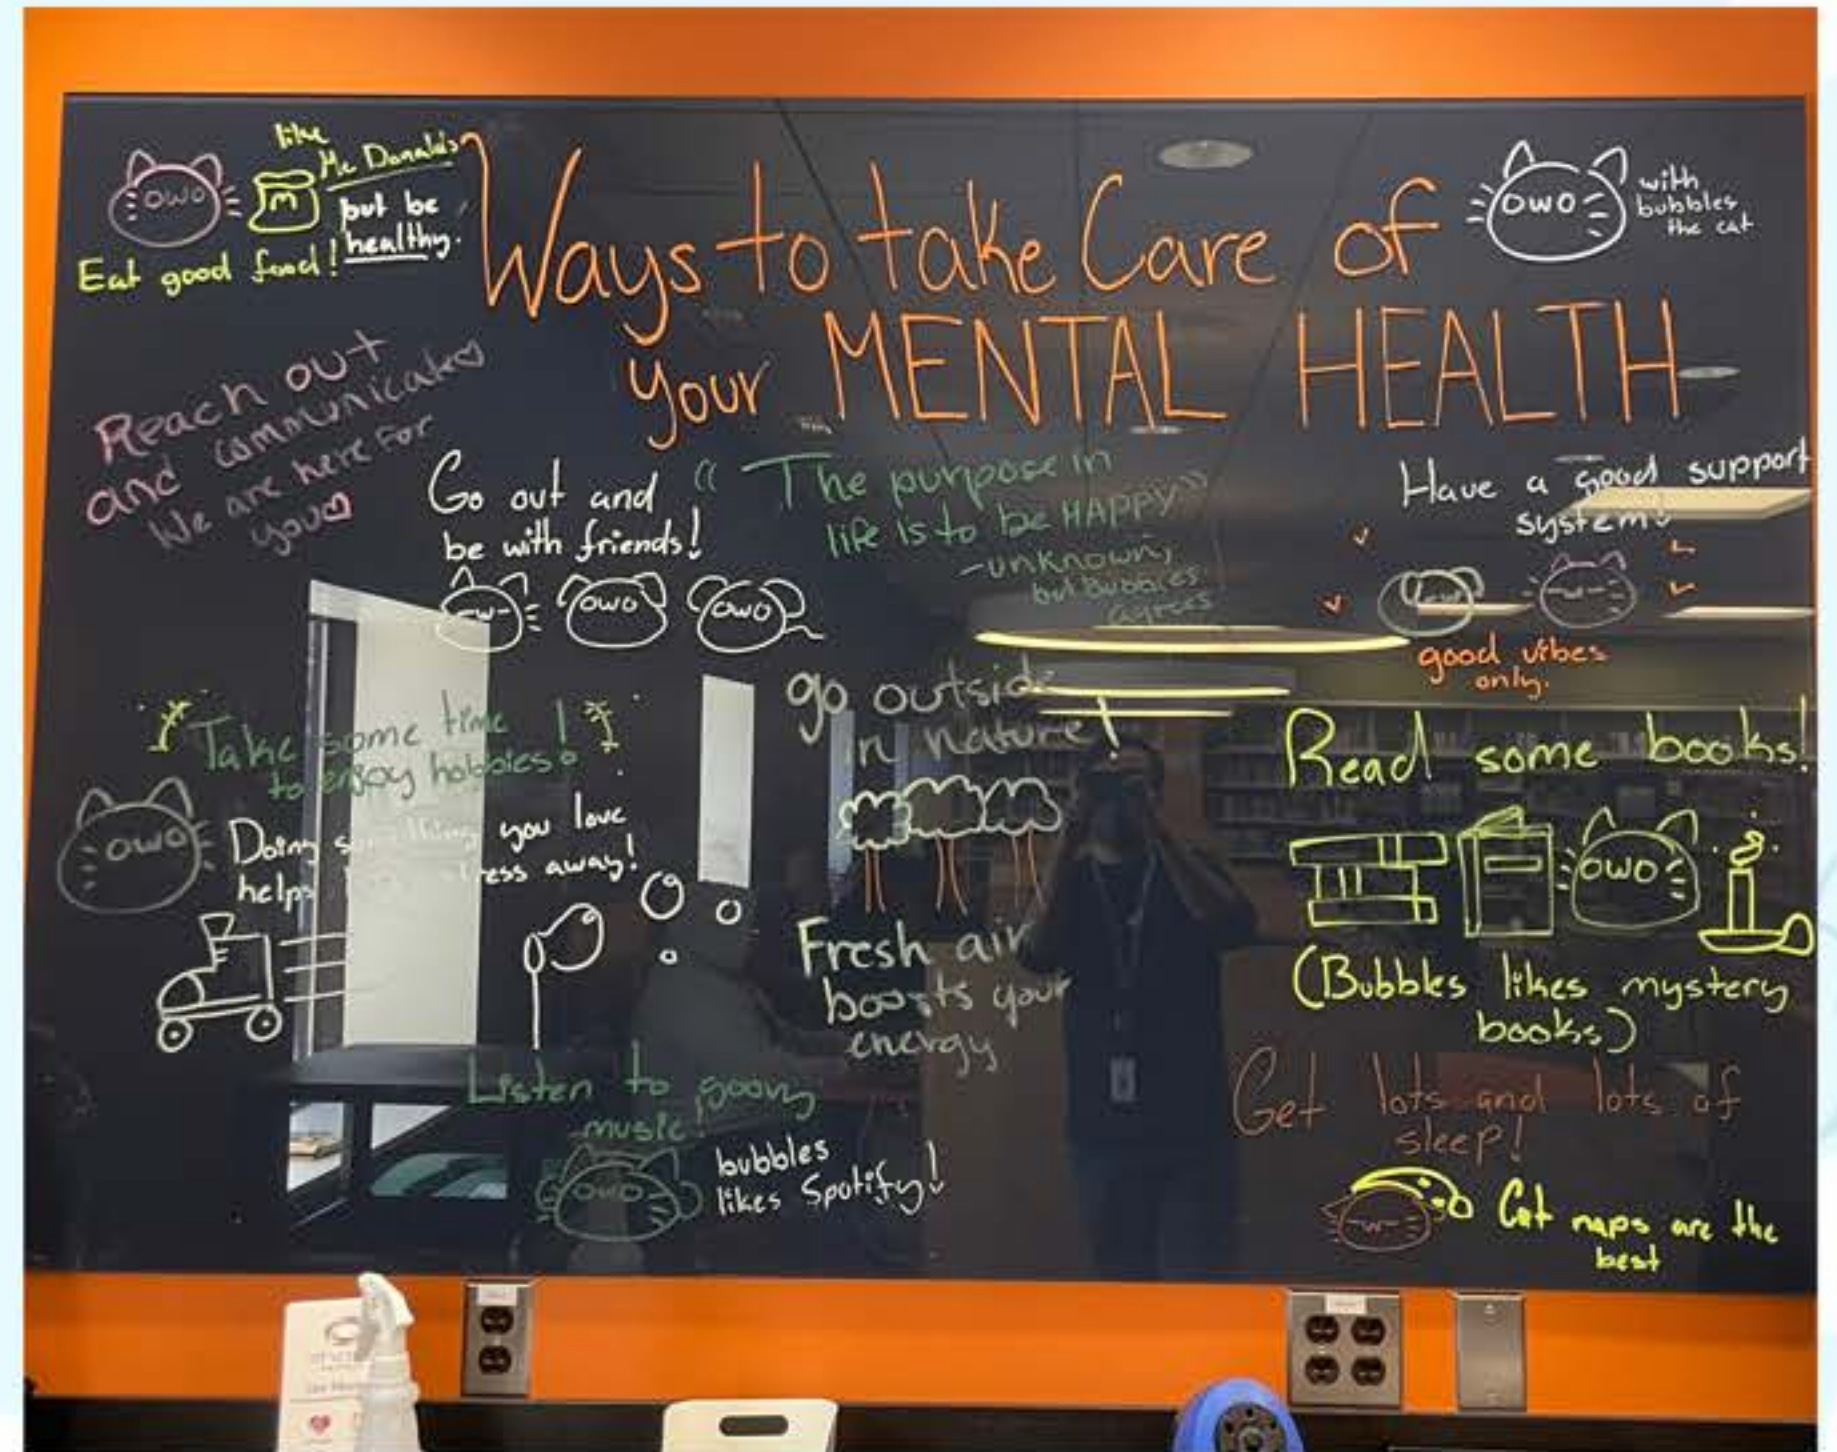 Ways to take Care of
your MENTAL HEALTH
owo
with
bubbles
the cat
owo
m
like
Mc Donalds
but be
healthy.
Eat good food!
Reach out
and communicate
We are here for
you
Go out and
be with friends!
-w-
owo
owo
"The purpose in
life is to be HAPPY"
-unknown,
but Bubbles
agrees
Have a good support
system!
-w-
good vibes
only.
Take some time
to enjoy hobbies!
owo
Doing something you love
helps stress away!
go outside
in nature!
Fresh air
boosts your
energy
Read some books!
owo
(Bubbles likes mystery
books)
Listen to
music!
owo
bubbles
likes Spotify!
Get lots and lots of
sleep!
-w-
Cat naps are the
best